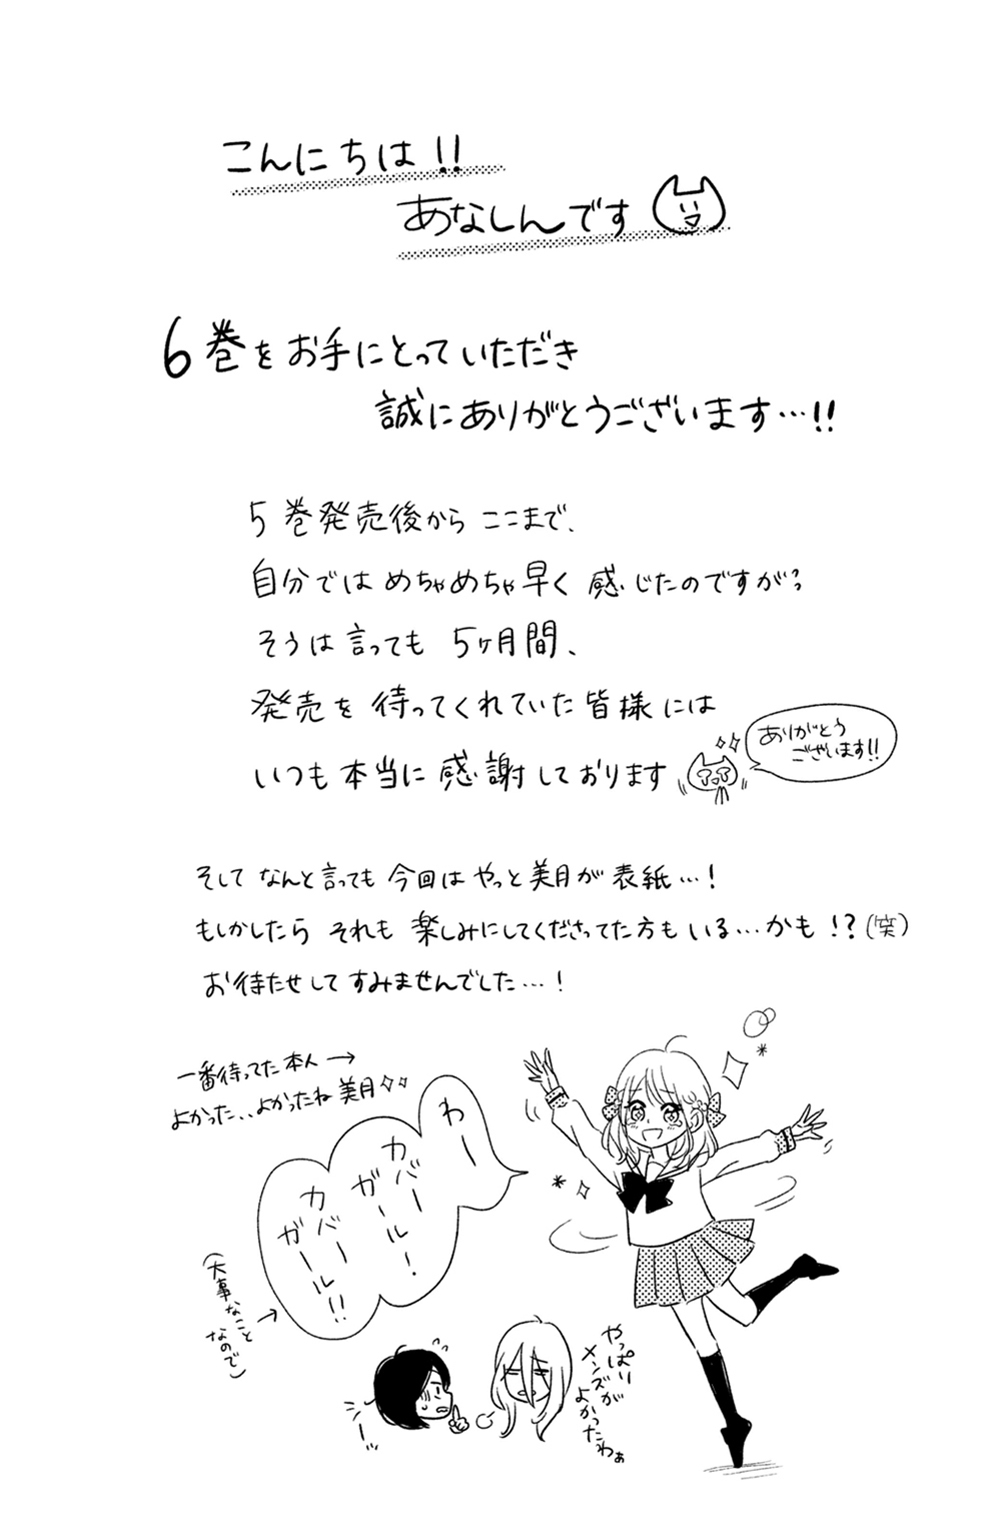 こんにちは!!
あなしんです
6巻をお手にとっていただき
誠にありがとうございます…!!
5巻発売後からここまで、
自分ではめちゃめちゃ早く感じたのですが、
そうは言っても5ヶ月間、
発売を待ってくれていた皆様には
いつも本当に感謝しております
ありがとう
ございます!!
そしてなんと言っても今回はやっと美月が表紙…!
もしかしたらそれも楽しみにしてくださってた方もいる…かも!?(笑)
お待たせしてすみませんでした…!
一番待ってた本人→
よかった…よかったね美月
わー
カバー
ガール!
カバー
ガール!!
(大事なこと
なので)
やっぱり
メンズが
よかったわぁ
シーッ